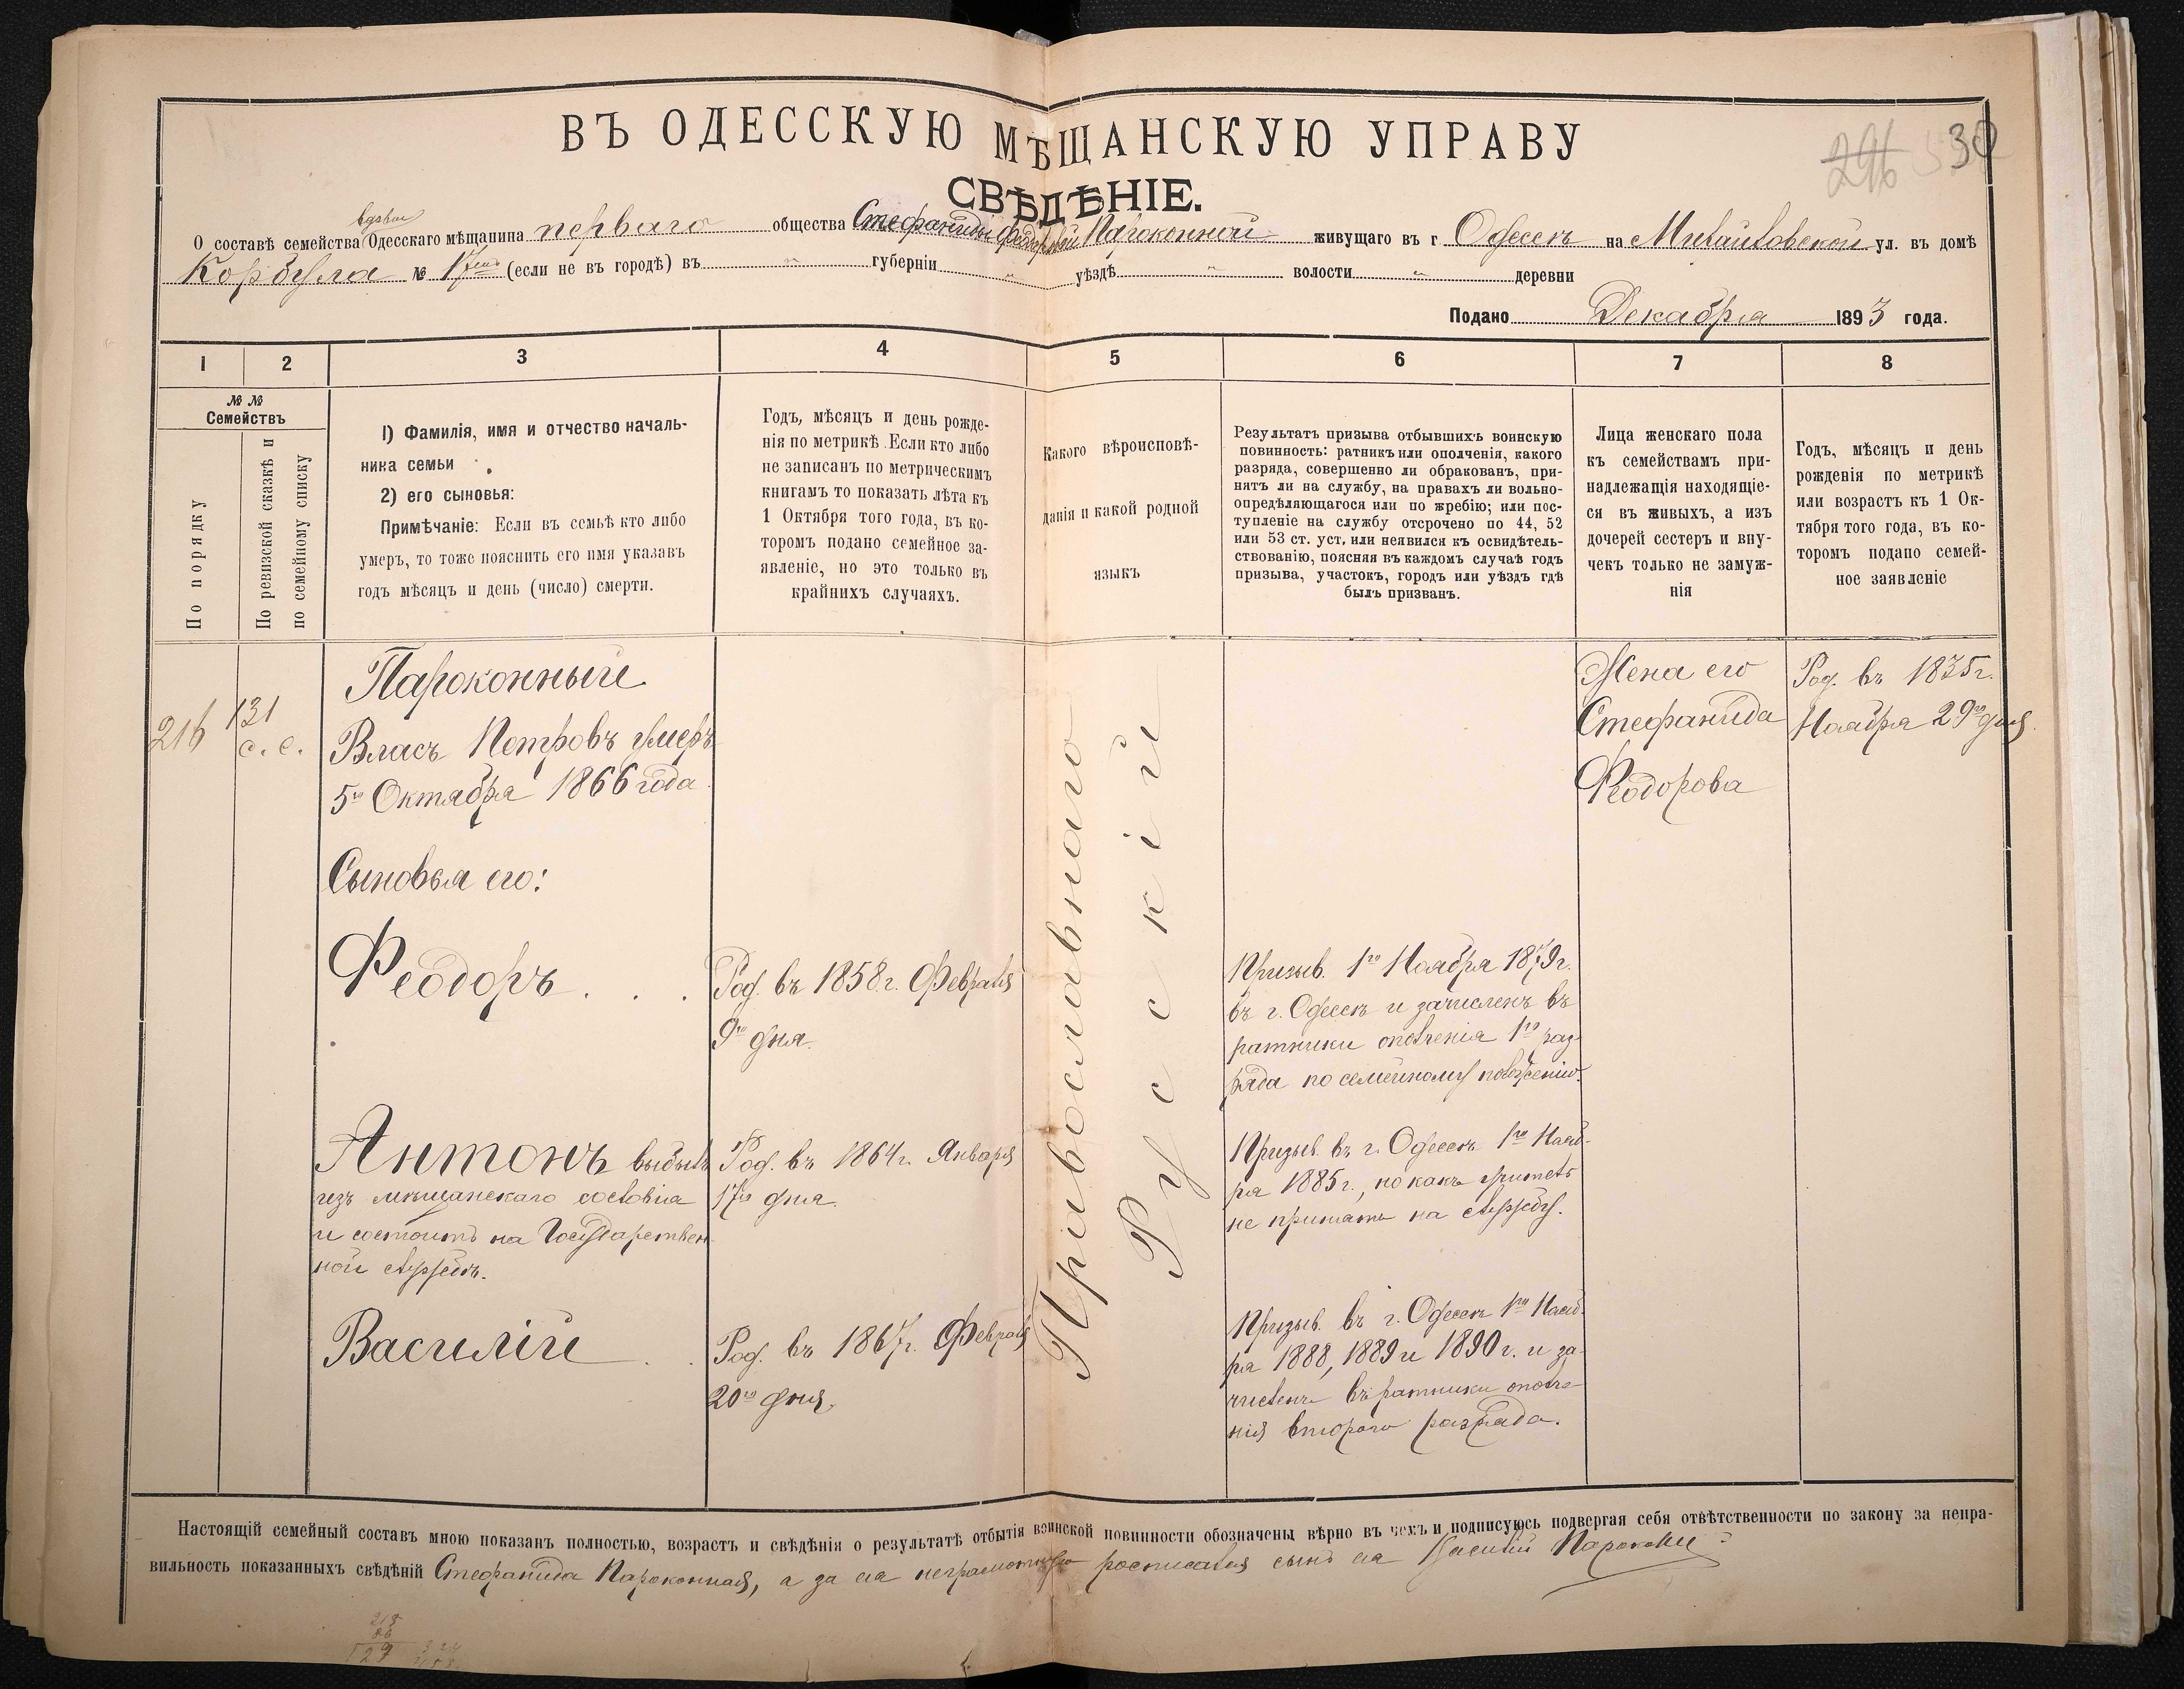 ВЪ ОДЕССКУЮ МѢЩАНСКУЮ УПРАВУ
30
СВѢДѢНІЕ.
вдовы
О составѣ семейства Одесскаго мѣщанина перваго общества Стефаниды Федоровой Пароконной живущаго въ г Одессѣ на Михайловской ул. въ домѣ
Корбула № 17 (если не въ городѣ) въ " губерніи " уѣздѣ " волости " деревни
Подано Декабря 1893 года.
1 2 3 4 5 6 7 8
№ № Семействъ
По порядку
По ревизской сказкѣ и по семейному списку
1) Фамилія, имя и отчество началь-
ника семьи
2) его сыновья:
Примѣчаніе: Если въ семьѣ кто либо
умеръ, то тоже пояснить его имя указавъ
годъ мѣсяцъ и день (число) смерти.
Годъ, мѣсяцъ и день рожде-
нія по метрикѣ. Если кто либо
не записанъ по метрическимъ
книгамъ то показать лѣта къ
1 Октября того года, въ ко-
торомъ подано семейное за-
явленіе, но это только въ
крайнихъ случаяхъ.
Какого вѣроисповѣ-
данія и какой родной
языкъ
Результатъ призыва отбывшихъ воинскую
повинность: ратникъ или ополченія, какого
разряда, совершенно ли обракованъ, при-
нятъ ли на службу, на правахъ ли вольно-
опредѣляющагося или по жребію; или пос-
тупленіе на службу отсрочено по 44, 52
или 53 ст. уст, или неявился къ освидѣтель-
ствованію, поясняя въ каждомъ случаѣ годъ
призыва, участокъ, городъ или уѣздъ гдѣ
былъ призванъ.
Лица женскаго пола
къ семействамъ при-
надлежащія находящіе-
ся въ живыхъ, а изъ
дочерей сестеръ и вну-
чекъ только не замуж-
нія
Годъ, мѣсяцъ и день
рожденія по метрикѣ
или возрастъ къ 1 Ок-
тября того года, въ ко-
торомъ подано семей-
ное заявленіе
216
131
с. с.
Пароконный
Власъ Петровъ умеръ
5го Октября 1866 года
Сыновья его:
Феодоръ . . .
Род. въ 1858 г. Февраля
9го дня.
Призыв. 1го Ноября 1879 г.
въ г. Одессѣ и зачисленъ въ
ратники ополченія 1го раз-
ряда по семейному положенію.
Антонъ выбылъ
изъ мѣщанскаго сословія
и состоитъ на Государствен-
ной службѣ.
Род. въ 1864 г. Января
17го дня.
Призыв. въ г. Одессѣ 1го Нояб-
ря 1885 г., но какъ учитель
не принятъ на службу.
Василій . .
Род. въ 1867 г. Февраля
20го дня.
Призыв. въ г. Одессѣ 1го Нояб-
ря 1888, 1889 и 1890 г. и за-
численъ въ ратники ополче-
нія второго разряда.
Православнаго
Русскій
Жена его
Стефанида
Феодорова
Род. въ 1835 г.
Ноября 29го дня.
Настоящій семейный составъ мною показанъ полностью, возрастъ и свѣдѣнія о результатѣ отбытія воинской повинности обозначены вѣрно въ чемъ и подписуюсь подвергая себя отвѣтственности по закону за непра-
вильность показанныхъ свѣдѣній Стефанида Пароконная, а за ея неграмотную росписался сынъ ея Василій Пароконный